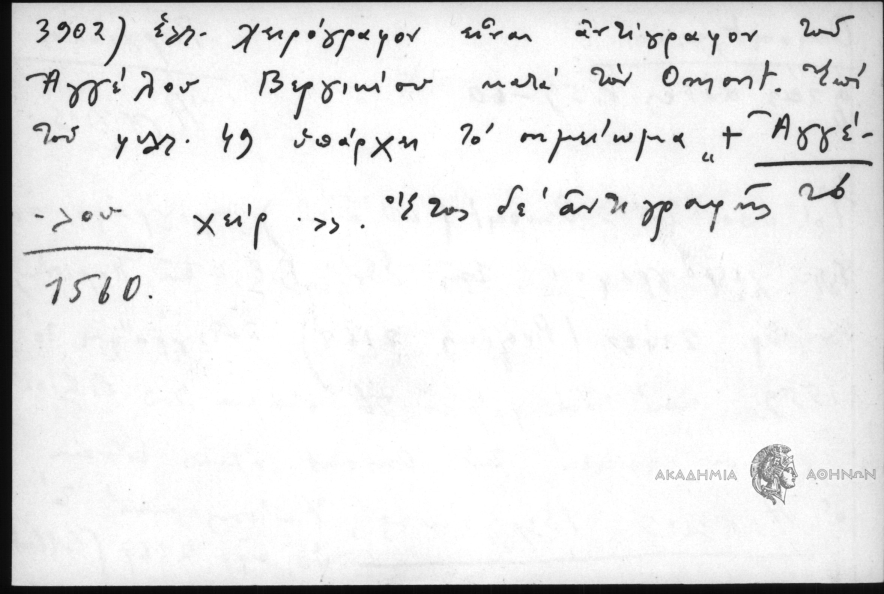 3902) ἑλλ. χειρόγραφον εἶναι ἀντίγραφον τοῦ
Ἀγγέλου Βεργικίου κατὰ τὸν Omont. Ἐπὶ
τοῦ φυλλ. 49 ὑπάρχει τὸ σημείωμα „+ Ἀγγέ-
-λου χείρ.». Ἔτος δὲ ἀντιγραφῆς τὸ
1560.
ΑΚΑΔΗΜΙΑ ΑΘΗΝΩΝ